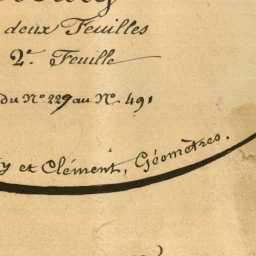 deux Feuilles
2e Feuille
du No 229 au No. 491
et Clément, Géomètres.